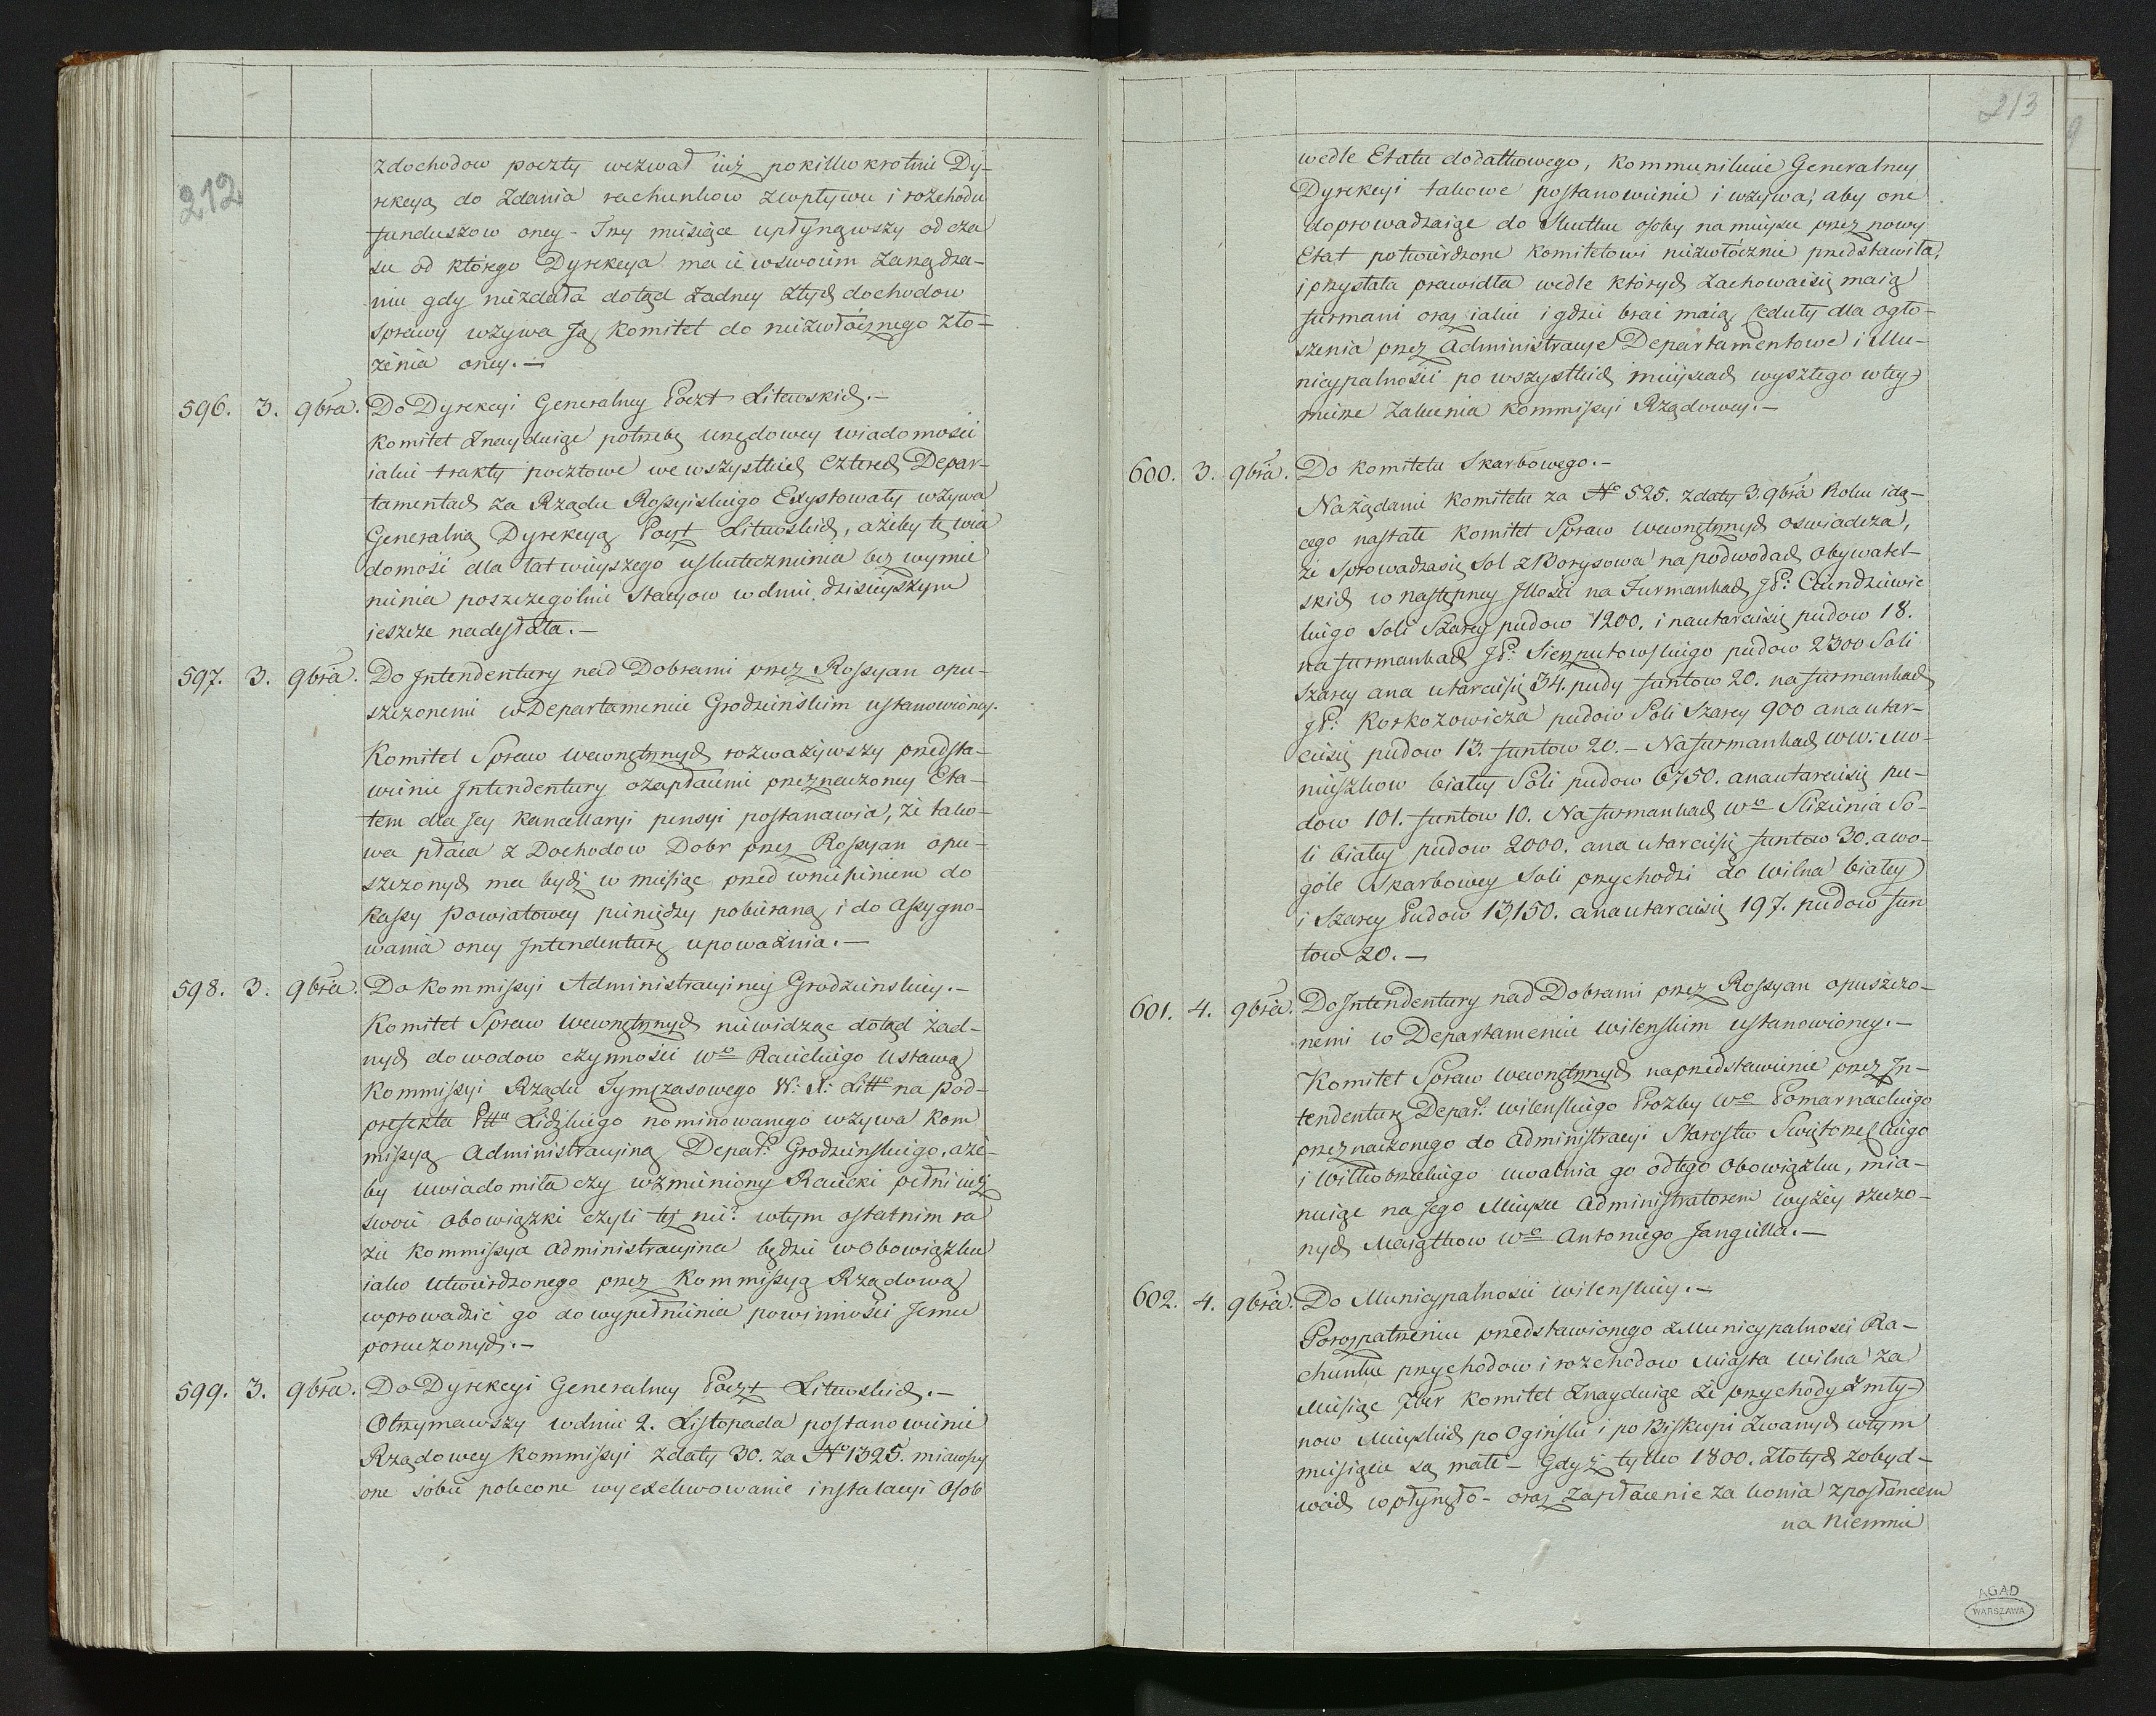 212
z dochodow poczty wezwał iuż pokilkokrotnie Dy-
rekcyą do Zdania rachunkow z wpływu i rozchodu
funduszow oney - Trzy miesiące upłynąwszy od cza
su od którego Dyrekcya ma ie w swoim zarządza-
niu gdy niezdała dotąd żadney z tych dochodow
sprawy wzywa Ją Komitet do niezwłócznego zło-
żenia oney.—
596. 3. 9bra. Do Dyrekcyi Generalney Poczt Litewskich.—
Komitet Znayduiąc potrzebę urzędowey wiadomości
iakie trakty pocztowe we wszystkich Cztérech Depar-
tamentach za Rządu Rossyiskiego Exystowały wzywa
Generalną Dyrekcyą Poczt Litewskich, ażeby tę wia
domość dla łatwieyszego uskutecznienia bez wymie
nienia poszczególnie Stacyow w dniu dzisieyszym
ieszcze nadesłała.—
597. 3. 9bra. Do Intendentury nad Dobrami przez Rossyan opu-
szczonemi w Departamencie Grodzieńskim ustanowioney.
Komitet Spraw wewnętrznych rozważywszy przedsta-
wienie Intendentury o zapłacenie przeznaczoney Eta-
tem dla Jey Kancellaryi pensyi postanawia, że tako-
wa płaca z Dochodow Dobr przez Rossyan opu-
szczonych ma bydź w miesiąc przed wniesieniem do
Kassy Powiatowey pieniędzy pobieraną i do assygno-
wania oney Intendenturę upoważnia.—
598. 3. 9bra. Do Kommissyi Administracyiney Grodzieńskiey.—
Komitet Spraw Wewnętrznych niewidząc dotąd żad-
nych dowodow czynności Wo Raieckiego ustawą
Kommissyi Rządu Tymczasowego W: X: Litto na Pod-
prefekta Pttu Lidzkiego nominowanego wzywa Kom
missyą Administracyiną Depar: Grodzieńskiego, aże-
by uwiadomiła czy wzmieniony Raiecki pełni iuż
swoie obowiązki czyli też nie? w tym ostatnim ra
zie Kommissya Administracyina będzie w Obowiązku
iako utwierdzonego przez Kommissyą Rządową
wprowadzić go do wypełnienia powinności Jemu
poruczonych.—
599. 3. 9bra. Do Dyrekcyi Generalney Poczt Litewskich.—
Otrzymawszy w dniu 2. Listopada postanowienie
Rządowey Kommissyi z daty 30. za No 1325. miawszy
one sobie polecone wyexekwowanie instalacyi Osob
213
wedle Etatu dodatkowego, kommunikuie Generalney
Dyrekcyi takowe postanowienie i wzywa, aby one
doprowadzaiąc do Skutku osoby na mieysce przez nowy
Etat potwierdzone Komitetowi niezwłócznie przedstawiła,
i przysłała prawidła wedle których zachować się maią
furmani oraz iakie i gdzie brać maią Cedułỹ dla ogło-
szenia przez Administracye Departamentowe i Mu-
nicypalności po wszystkich mieyscach wyszłego w tey
mierze Zalecenia Kommissyi Rządowey.—
600. 3. 9bra. Do Komitetu Skarbowego.—
Na żądanie Komitetu za No 525. z daty 3. 9bra Roku idą-
cego nastałe Komitet Spraw wewnętrznych oswiadcza,
że Sprowadza się Sol z Borysowa na podwodach Obywatel-
skich w następney Jlłości na Furmankach JP: Ciundziewic
kiego Soli Szarey pudow 1200. i na utarcie się pudow 18.
na furmankach JP: Sierzputowskiego pudow 2300 Soli
szarey a na utarcie się 34. pudy funtow 20. na furmankach
JP: Korkozowicza pudow Soli Szarey 900 a na utar-
cie się pudow 13. funtow 20. — Na furmankach WW: Mo-
niuszkow białey Soli pudow 6,750. a na utarcie się pu-
dow 101. funtow 10. Na furmankach Wo Slizienia So-
li białey pudow 2000. a na utarcie się funtow 30. a wo-
góle Skarbowey Soli przychodzi do Wilna białey
i Szarey Pudow 13,150. a na utarcie się 197. pudow fun
tow 20.—
601. 4. 9bra. Do Intendentury nad Dobrami przez Rossyan opuszczo-
nemi w Departamencie Wilenskim ustanowioney.—
Komitet Spraw wewnętrznych na przedstawienie przez In-
tendenturę Depar: Wilenskiego Prozby Wo Pomarnackiego
przeznaczonego do Administracyi Starostw Swiętorzeckiego
i Wilkobrzeskiego uwalnia go od tego Obowiązku, mia-
nuiąc na Jego Mieysce Administratorem wyżéy rzeczo-
nych Maiątkow Wo Antoniego Jangiłła.—
602. 4. 9bra. Do Municypalności Wilenskiey.—
Po rozpatrzeniu przedstawionego z Municypalności Ra-
chunku przychodow i rozchodow Miasta Wilna za
Miesiąc 7ber Komitet Znayduiąc że przychody z mły-
now Mieyskich po Ogińsku i po Biskupi Zwanych w tym
miesiącu są małe — Gdyż tylko 1800. złotych z obyd-
woch wpłynęło — oraz zapłacenie za konia z posłańcem
na Niemnie
AGAD
WARSZAWA